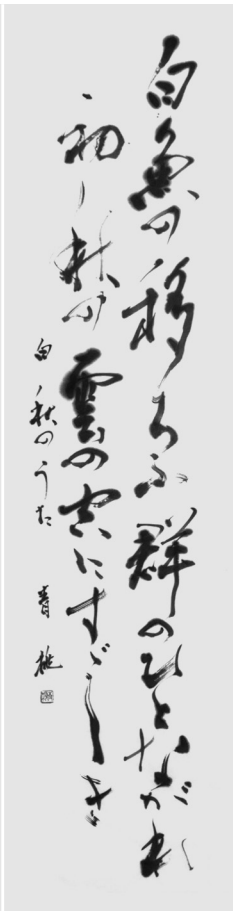 白魚の移らふ群のひとながれ
初秋の雲の空にすゞしき
白秋のうた 青桃